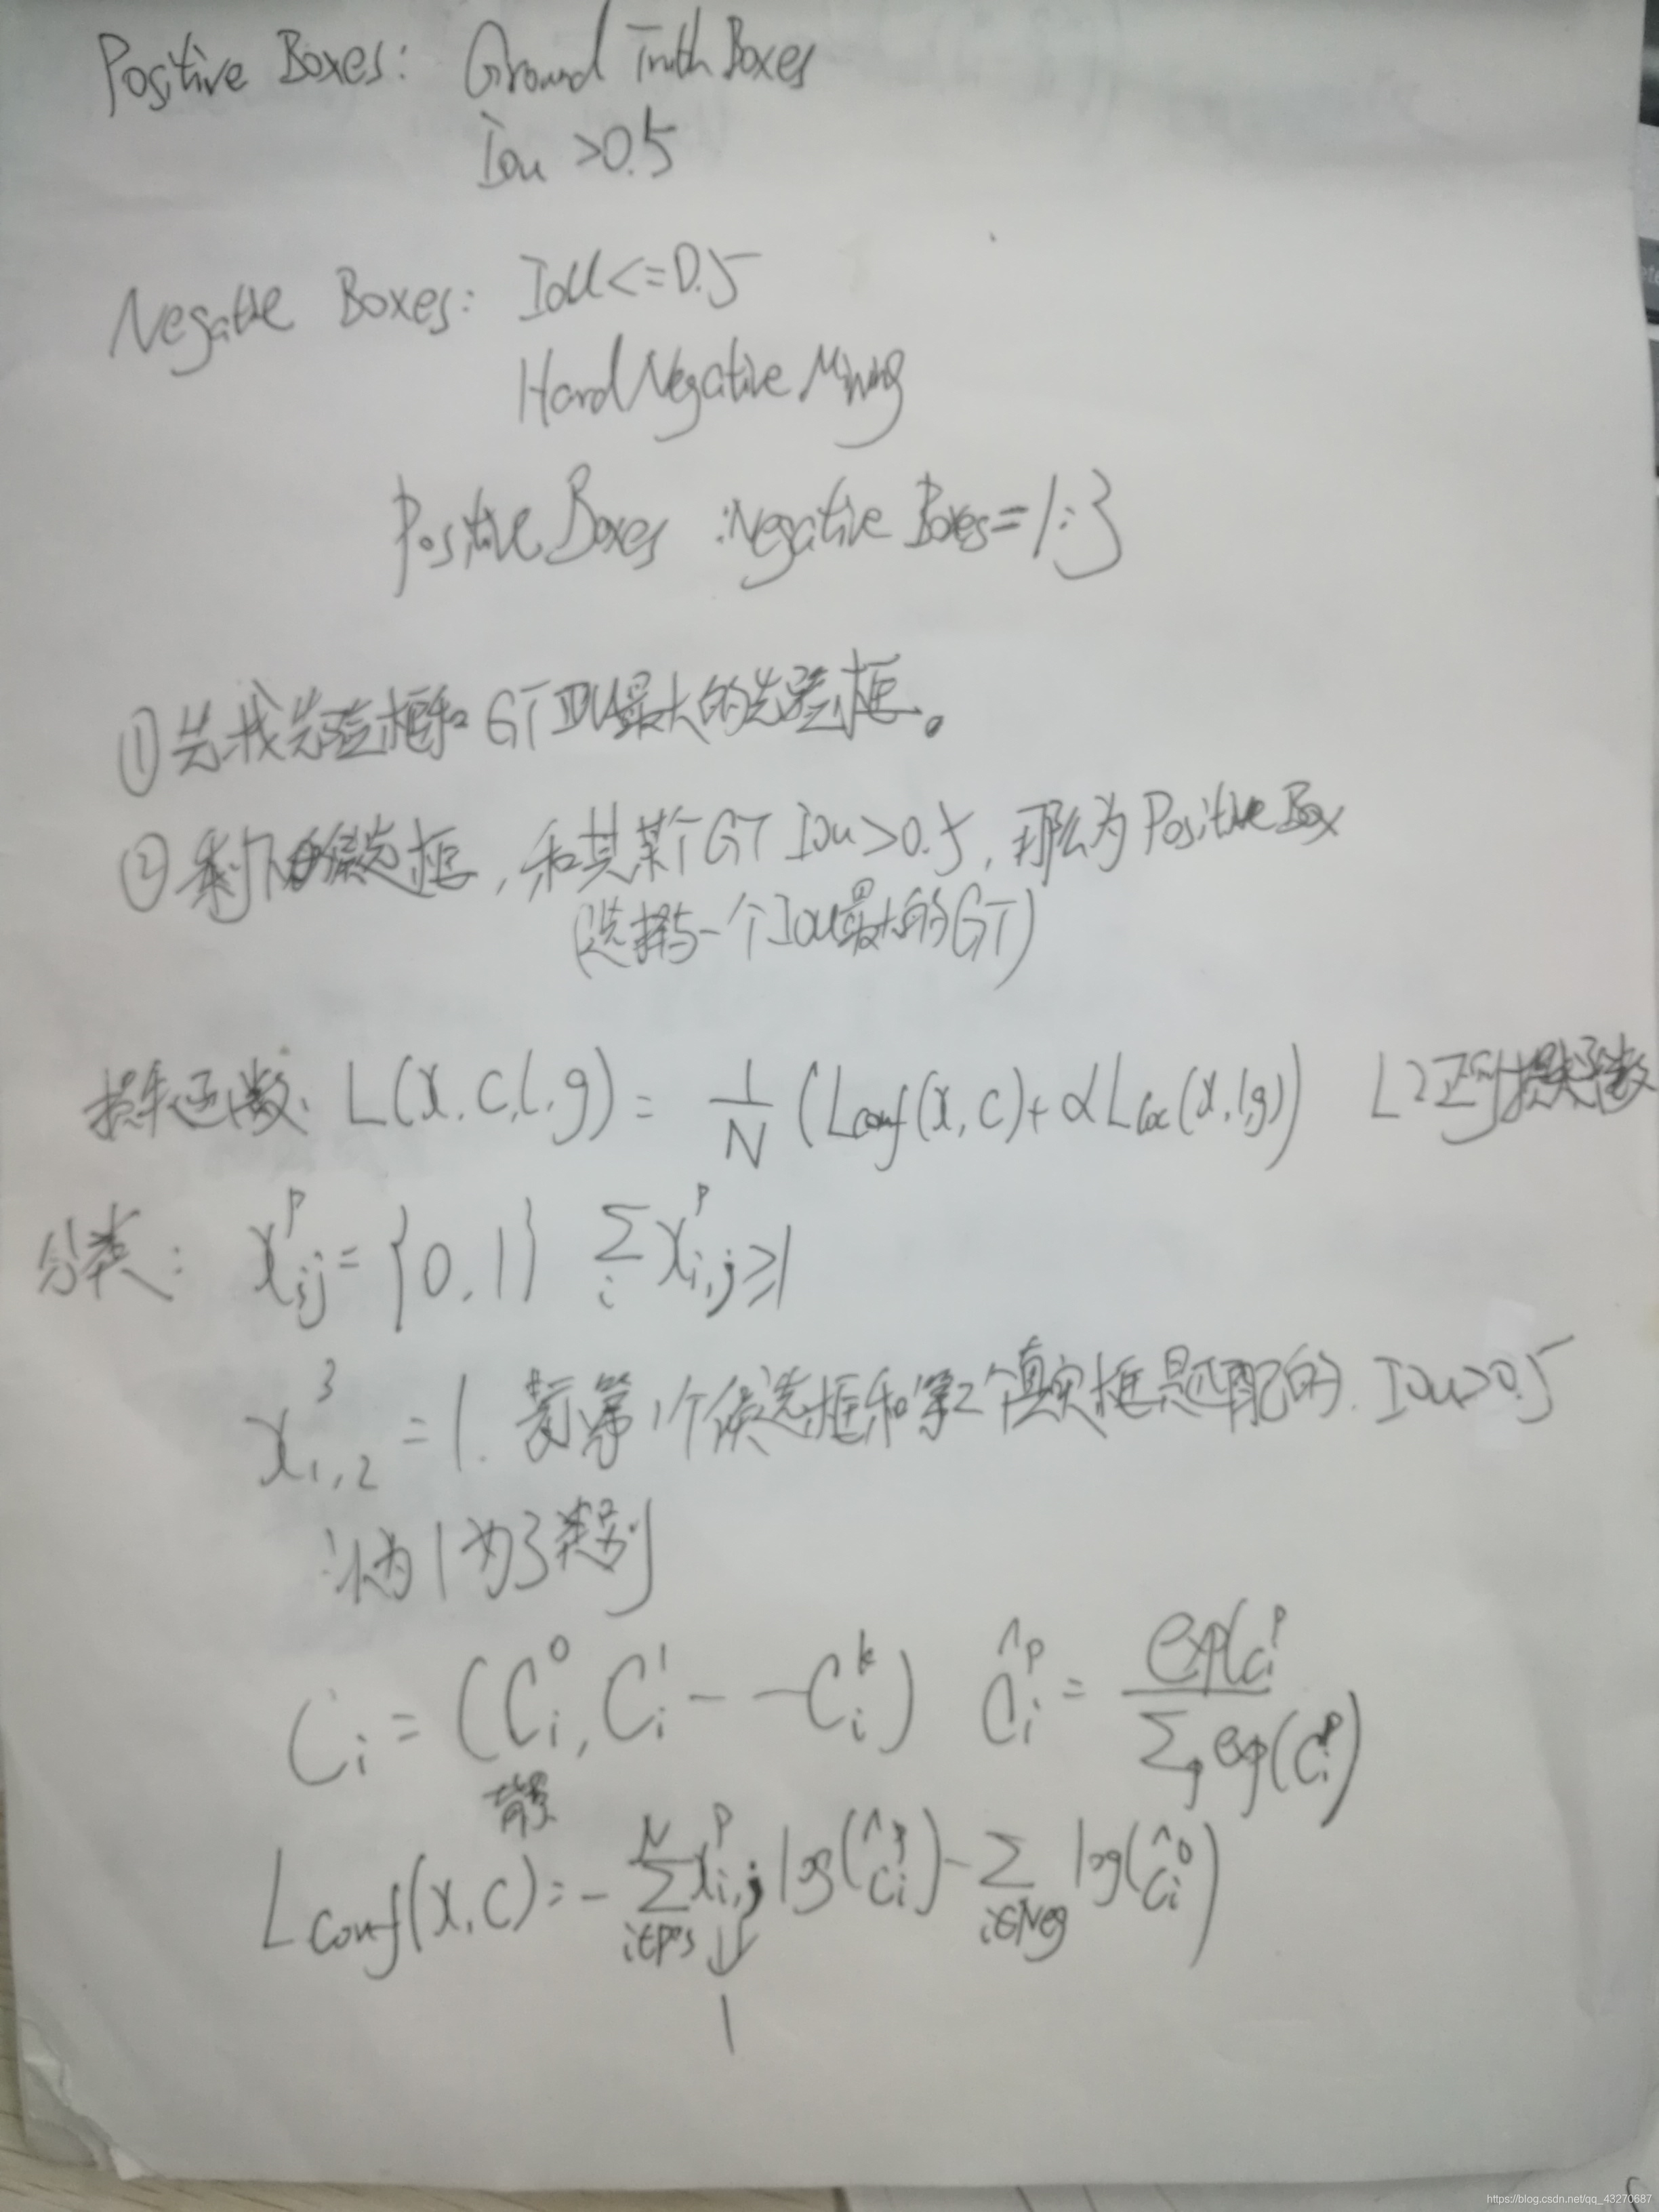 Positive Boxes: Ground Truth Boxes
Iou >0.5
Negative Boxes: IoU<=0.5
Hard Negative Mining
Positive Boxes :Negative Boxes=1:3
①先找先验框和GT IOU最大的先验框。
②剩下的候选框,和其某个GT Iou>0.5,那么为Positive Box
(选择与一个IoU最大的GT)
损失函数: L(x,c,l,g)= 1/N (Lconf(x,c)+αLloc(x,l,g)) L2正则损失函数
分类: x_{ij}^p={0,1} ∑_i x_{i,j}^p≥1
x_{1,2}^3=1. 表示第1个候选框和第2个真实框是匹配的. Iou>0.5
认为1为3类别
C_i=(C_i^0,C_i^1---C_i^k) ĉ_i^p= exp(c_i^p / ∑_p exp(c_i^p)
背景
Lconf(x,c)=-∑_{i∈Pos}^N x_{i,j}^p log(ĉ_i^p)-∑_{i∈Neg} log(ĉ_i^0)
↓
1
https://blog.csdn.net/qq_43270687